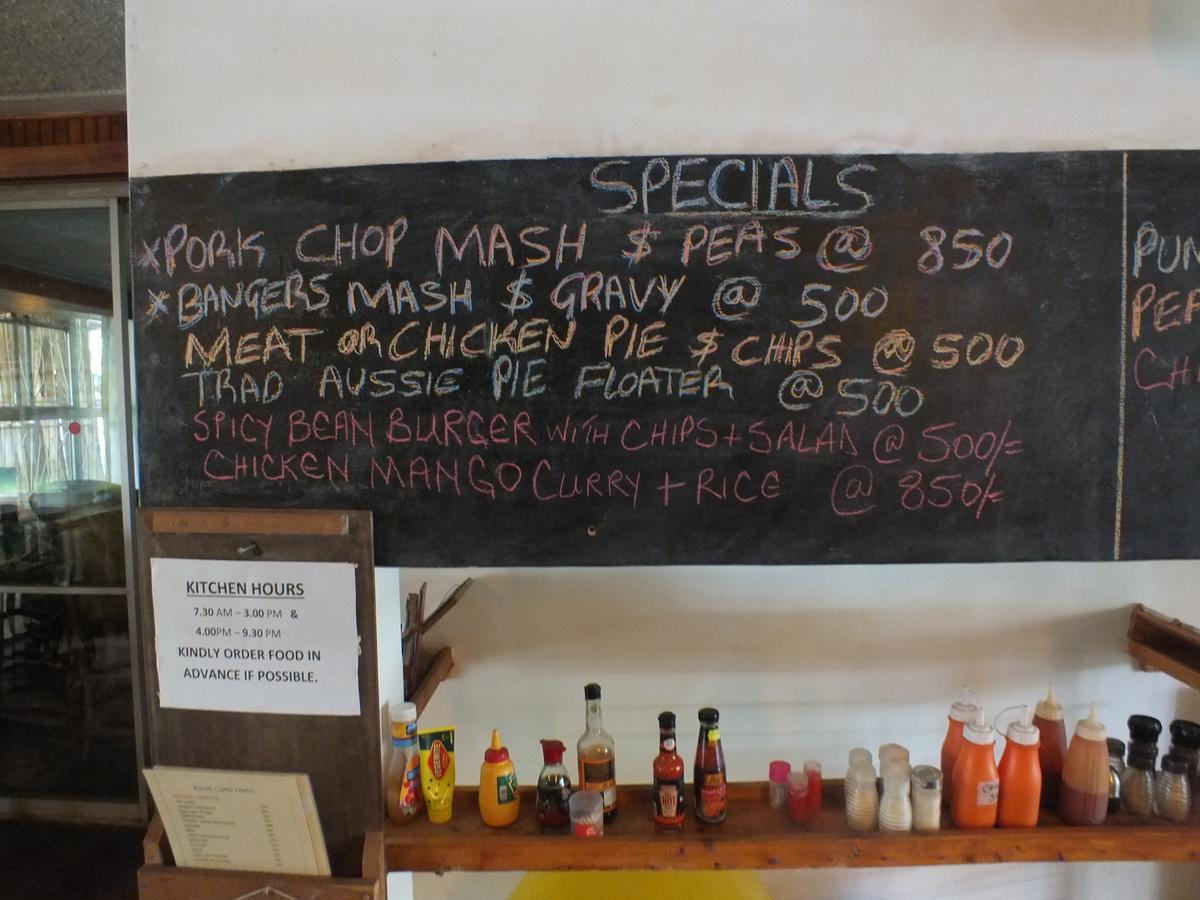 SPECIALS
xPORK CHOP MASH $ PEAS @ 850
xBANGERS MASH $ GRAVY @ 500
MEAT OR CHICKEN PIE $ CHIPS @ 500
TRAD AUSSIE PIE FLOATER @ 500
SPICY BEAN BURGER WITH CHIPS + SALAD @ 500/=
CHICKEN MANGO CURRY + RICE @ 850/=
KITCHEN HOURS
7.30 AM – 3.00 PM &
4.00PM – 9.30 PM
KINDLY ORDER FOOD IN
ADVANCE IF POSSIBLE.
HOT